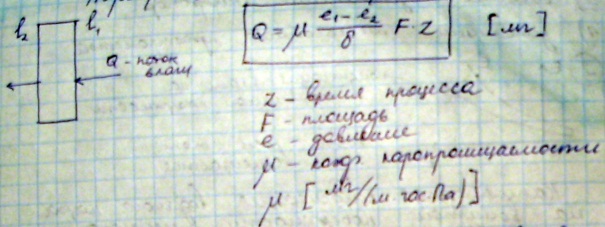 e₂ e₁
Q - поток
влаги
Q = μ (e₁ - e₂)/δ F · z [мг]
z - время процесса
F - площадь
e - давление
μ - коэф. паропроницаемости
μ [мг/(м·час·Па)]